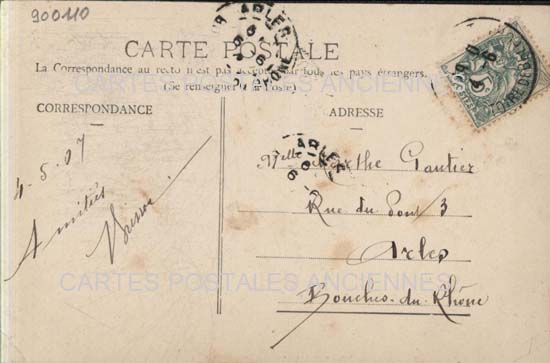 900110
CARTE POSTALE
La Correspondance au recto n'est pas acceptée par tous les pays étrangers.
(Se renseigner à la Poste)
CORRESPONDANCE
ADRESSE
4-5.07
Amitiés
Melle Marthe Gautier
Rue du Pont 3
Arles
Bouches-du-Rhône
ARLES
RHONE
ARLES
CARTES POSTALES ANCIENNES
CARTES POSTALES ANCIENNES